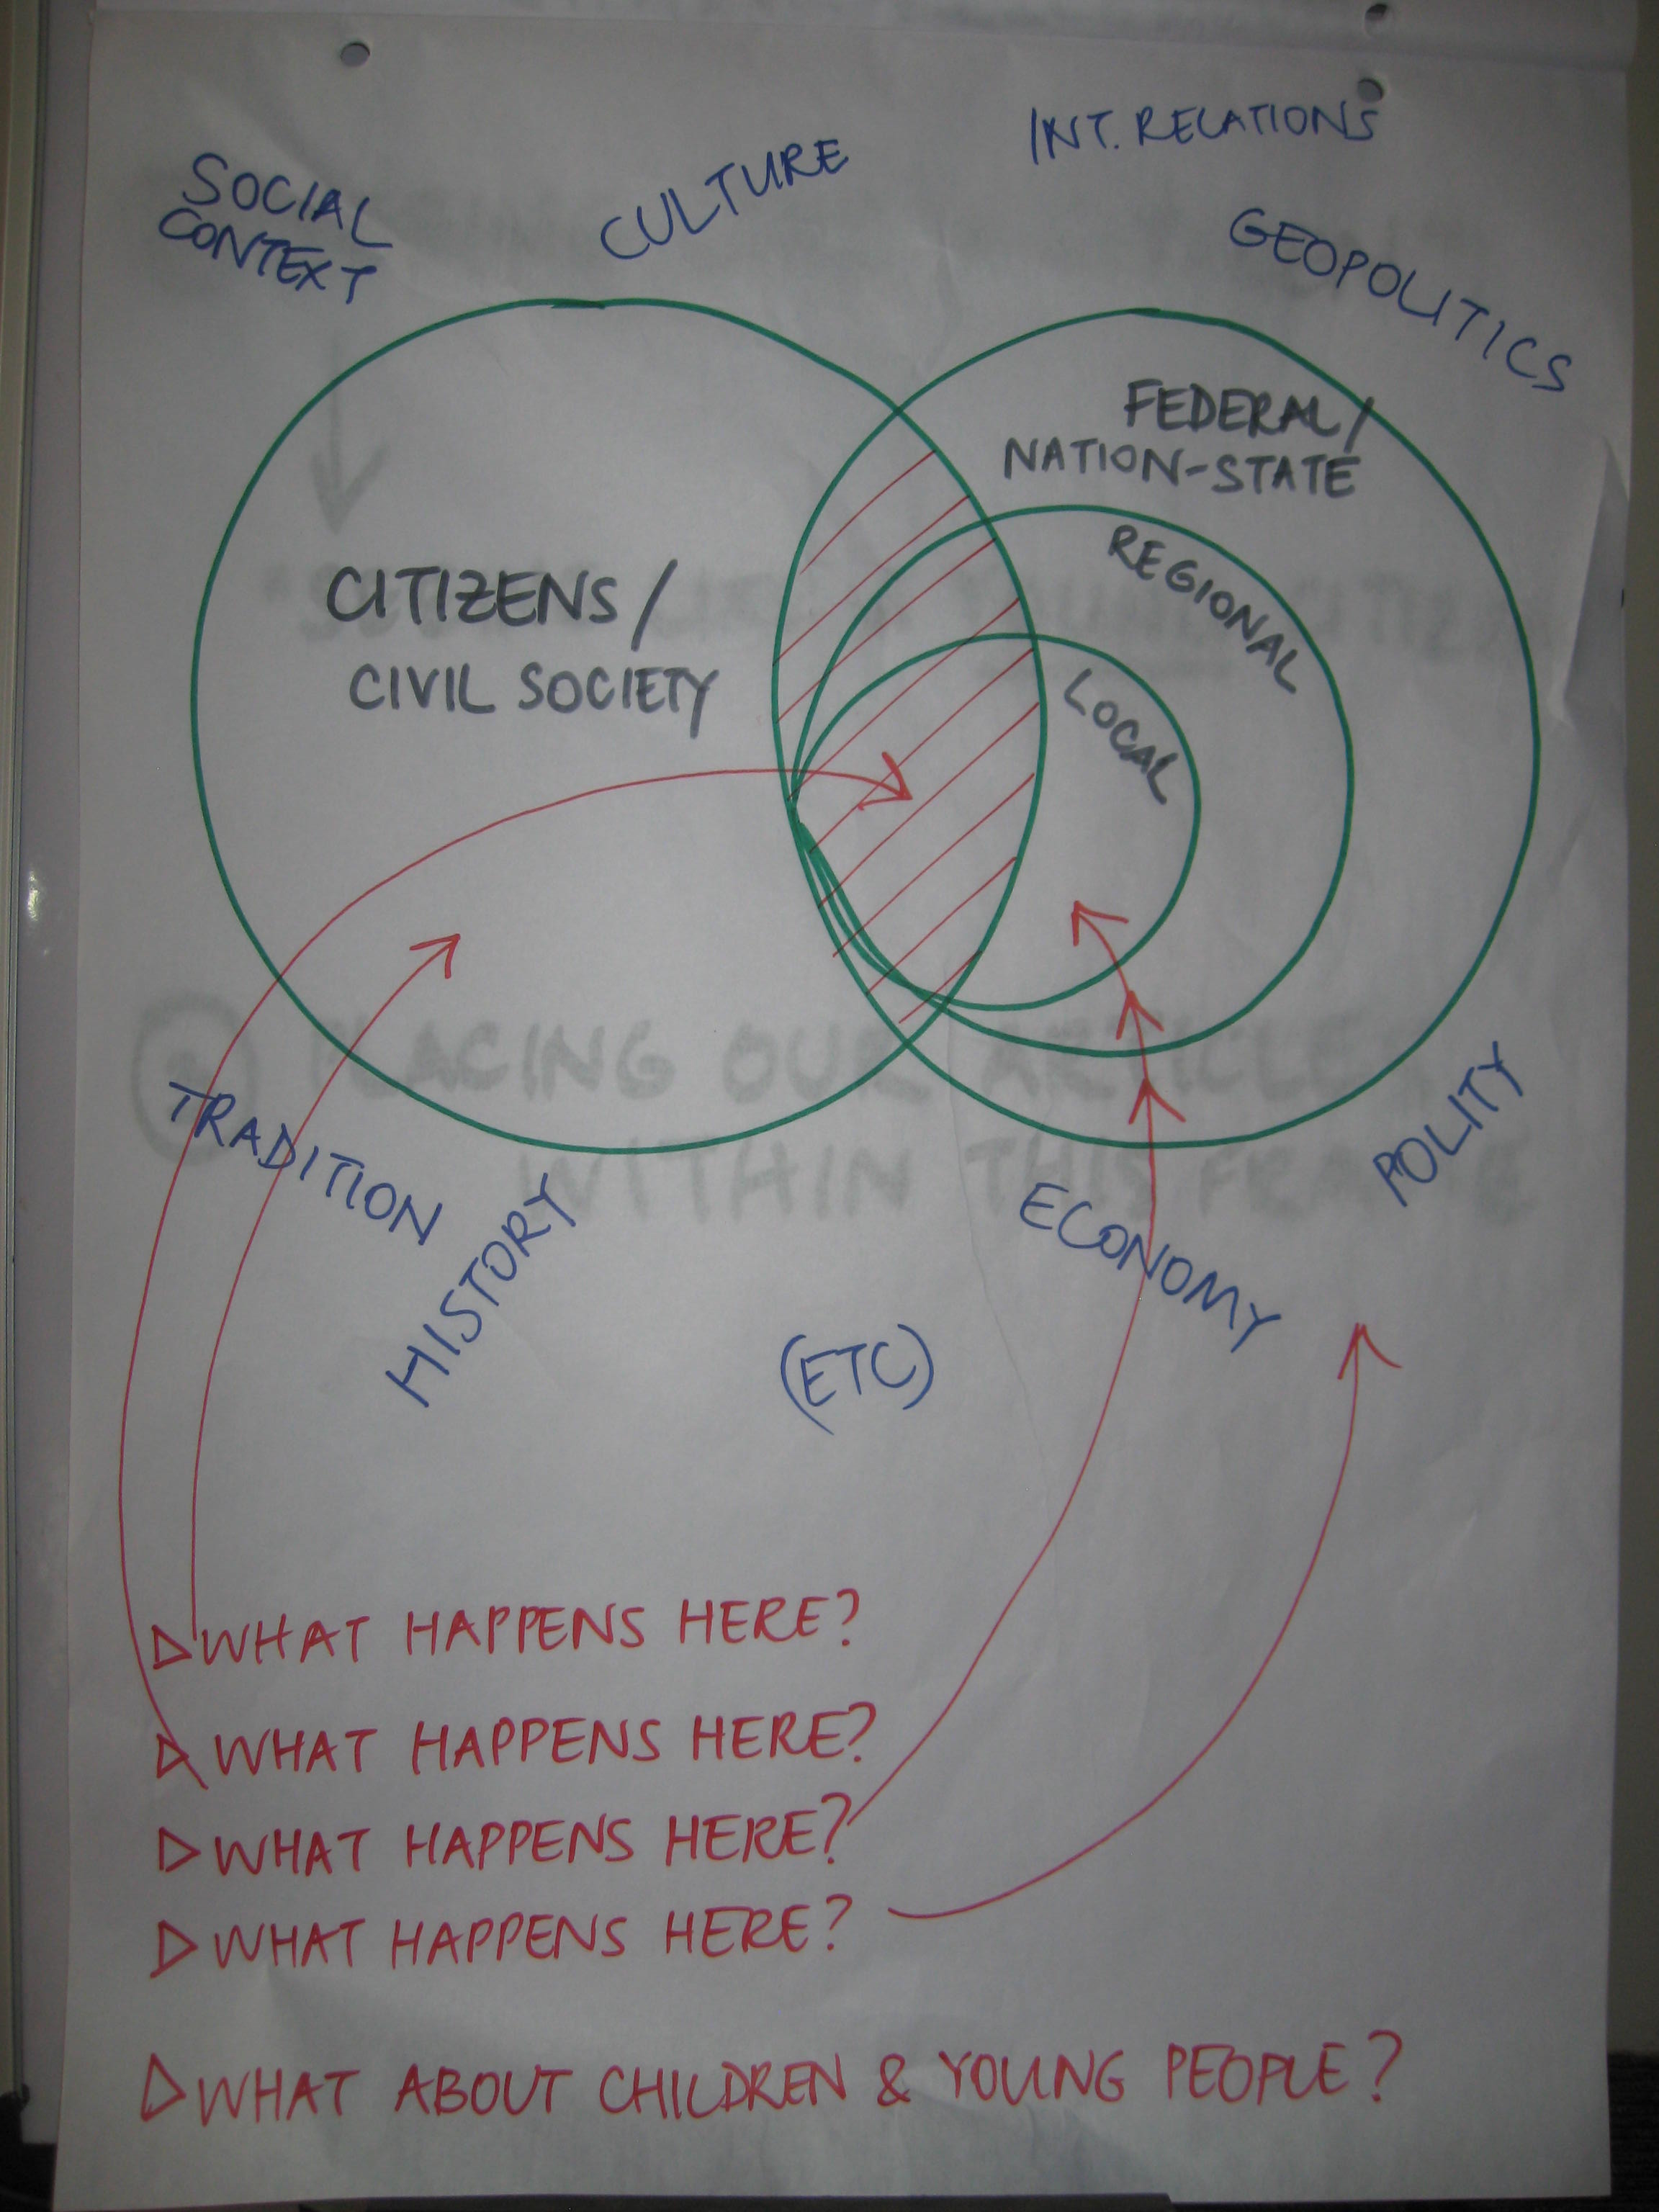 SOCIAL
CONTEXT
CULTURE
INT. RELATIONS
GEOPOLITICS
FEDERAL/
NATION-STATE
REGIONAL
LOCAL
CITIZENS/
CIVIL SOCIETY
TRADITION
HISTORY
(ETC)
ECONOMY
POLITY
PLACING OUR ARTICLE
WITHIN THIS FRAME
▷WHAT HAPPENS HERE?
▷WHAT HAPPENS HERE?
▷WHAT HAPPENS HERE?
▷WHAT HAPPENS HERE?
▷WHAT ABOUT CHILDREN & YOUNG PEOPLE?